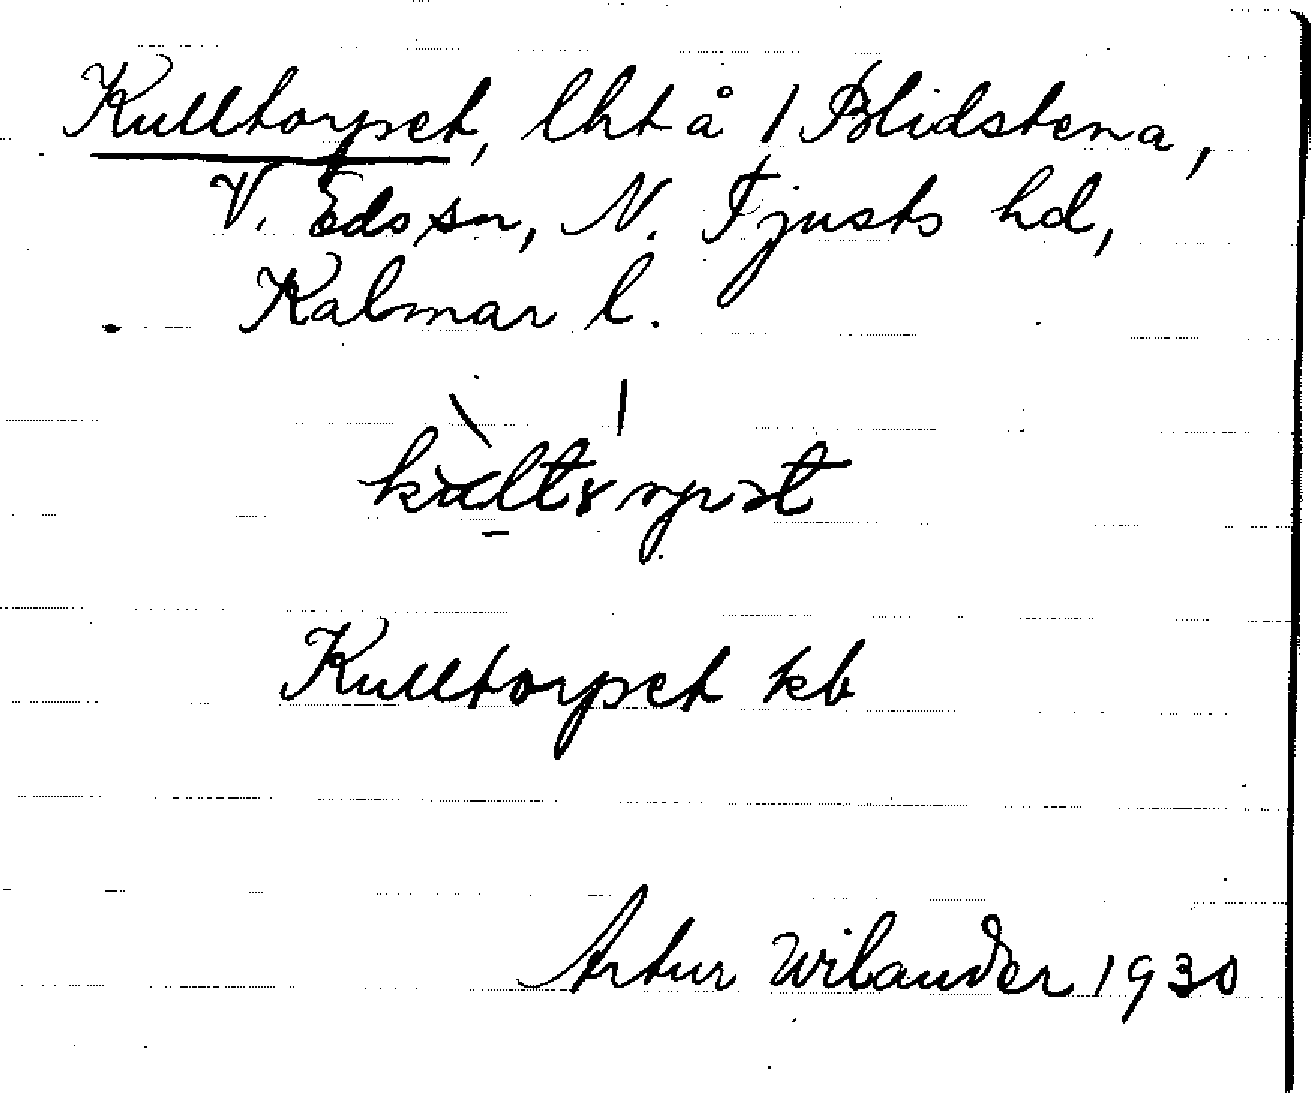 Kulltorpet, lht å 1 Blidstena,
V. Eds sn, N. Tjusts hd,
Kalmar l.
Kulltorpet kb
Artur Wilander 1930